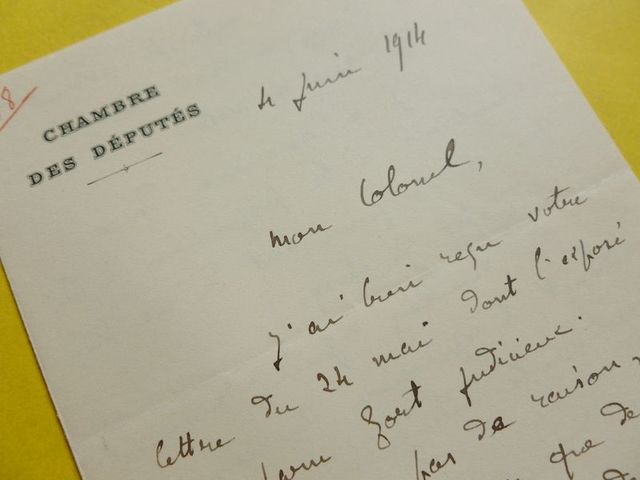 8
CHAMBRE
DES DÉPUTÉS
4 Juin 1914
Mon Colonel,
J'ai bien reçu votre
lettre du 24 mai dont l'exposé
fort judicieux.
pas de raison,
que de